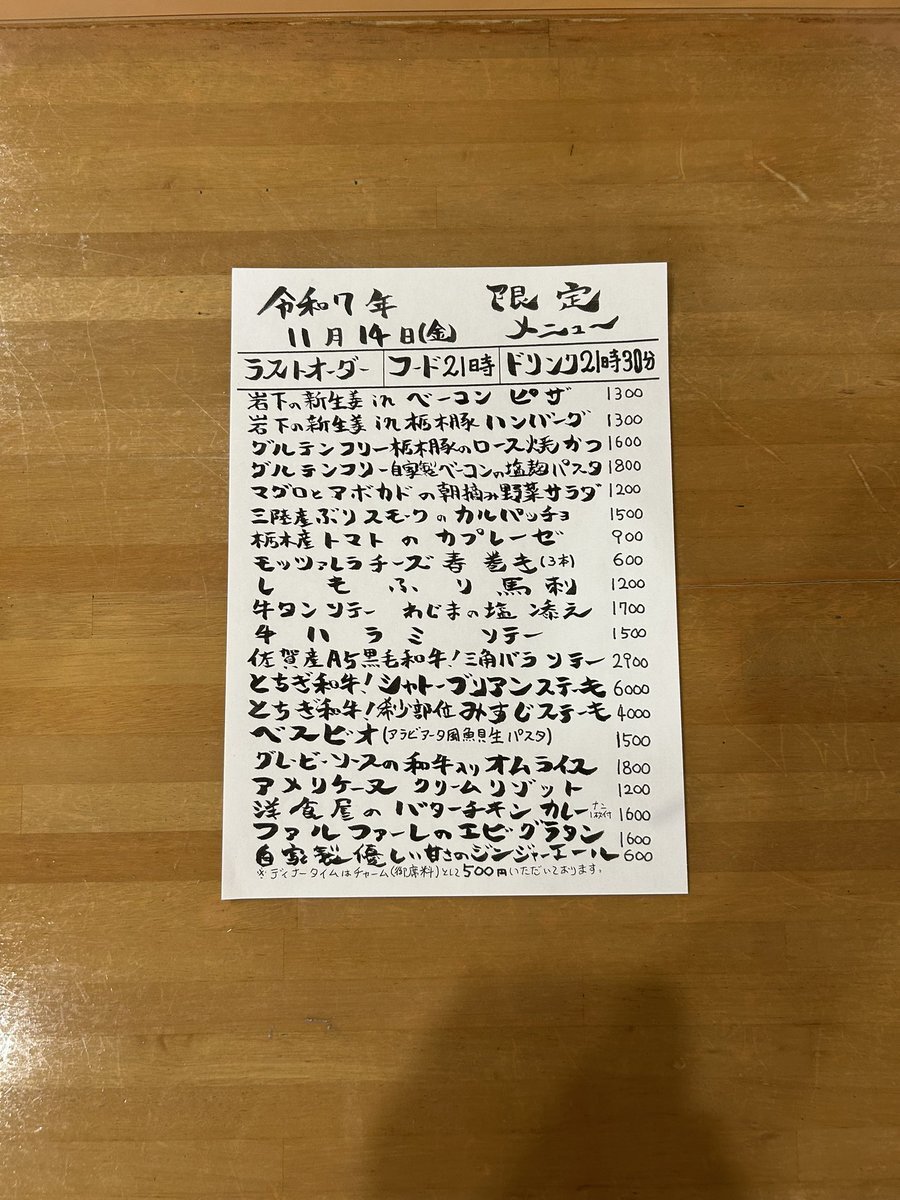 令和7年 限定
11月14日(金) メニュー
ラストオーダー フード21時 ドリンク21時30分
岩下の新生姜in ベーコン ピザ 1300
岩下の新生姜in栃木豚ハンバーグ 1300
グルテンフリー栃木豚のロース焼かつ 1600
グルテンフリー自家製ベーコンの塩麹パスタ 1800
マグロとアボカドの朝摘み野菜サラダ 1200
三陸産ぶりスモークのカルパッチョ 1500
栃木産トマトのカプレーゼ 900
モッツァレラチーズ春巻き(3本) 600
しもふり馬刺 1200
牛タンソテー わじまの塩添え 1700
牛ハラミソテー 1500
佐賀産A5黒毛和牛!三角バラソテー 2900
とちぎ和牛!シャトーブリアンステーキ 6000
とちぎ和牛!希少部位みすじステーキ 4000
ベスビオ(アラビアータ風魚貝生パスタ) 1500
グレービーソースの和牛入りオムライス 1800
アメリケーヌ クリームリゾット 1200
洋食屋のバターチキンカレーナン1枚付 1600
ファルファーレのエビグラタン 1600
自家製優しい甘さのジンジャーエール 600
※ディナータイムはチャーム(御席料)として500円いただいております。